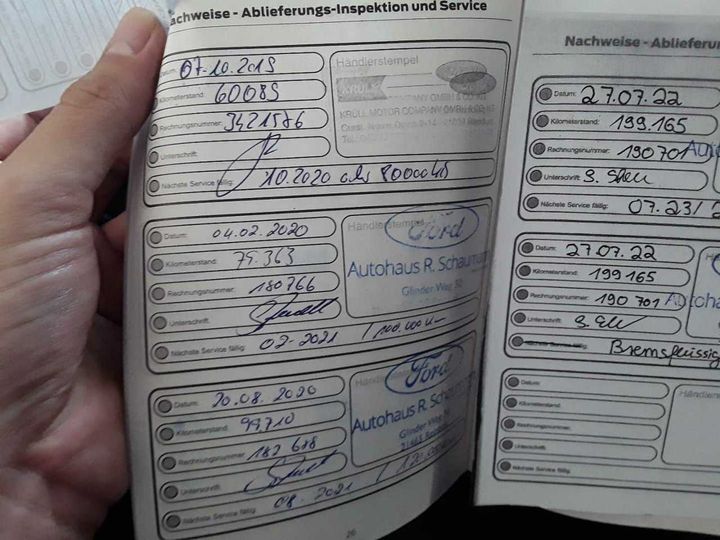 Nachweise - Ablieferungs-Inspektion und Service
Datum: 07.10.2019
Kilometerstand: 60089
Rechnungsnummer: 3421586
Unterschrift:
Nächste Service fällig: 10.2020 oder 80000 KM
Händlerstempel
KRÜLL
KRÜLL MOTOR COMPANY GMBH & CO KG
Datum: 04.02.2020
Kilometerstand: 79.363
Rechnungsnummer: 180766
Unterschrift:
Nächste Service fällig: 02-2021 / 100.000 Km
Händlerstempel
Ford
Autohaus R. Schaumann
Glinder Weg
Datum: 20.08.2020
Kilometerstand: 99710
Rechnungsnummer: 182 678
Unterschrift:
Nächste Service fällig: 08.2021 / 120.000
Ford
Autohaus R. Schaumann
Glinder Weg
26
Nachweise - Ablieferun
Datum: 27.07.22
Kilometerstand: 199.165
Rechnungsnummer: 190 701
Unterschrift:
Nächste Service fällig: 07.23/2
Datum: 27.07.22
Kilometerstand: 199 165
Rechnungsnummer: 190 701
Unterschrift:
Nächste Service fällig: Bremsflüssig
Datum:
Kilometerstand:
Rechnungsnummer:
Unterschrift:
Nächste Service fällig:
Händlers